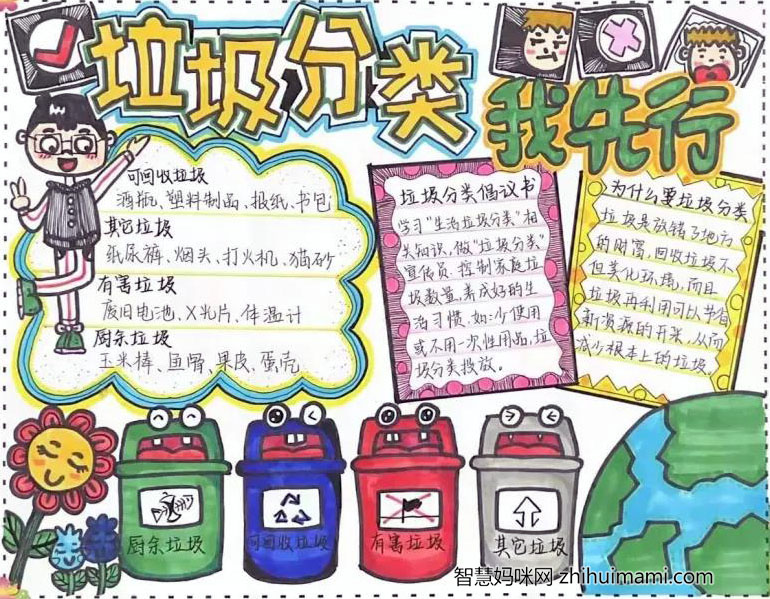 垃圾分类
我先行
可回收垃圾
酒瓶、塑料制品、报纸、书包
其它垃圾
纸尿裤、烟头、打火机、猫砂
有害垃圾
废旧电池、X光片、体温计
厨余垃圾
玉米棒、鱼骨、果皮、蛋壳
垃圾分类倡议书
学习“生活垃圾分类”相
关知识,做“垃圾分类”
宣传员.控制家庭垃
圾数量,养成好的生
活习惯、如:少使用
或不用一次性用品,垃
圾分类投放。
为什么要垃圾分类
垃圾是放错了地方
的财富,回收垃圾不
但美化环境,而且
垃圾再利用可以节省
新资源的开采,从而
减少根本上的垃圾.
厨余垃圾
可回收垃圾
有害垃圾
其它垃圾
智慧妈咪网 zhihuimami.com